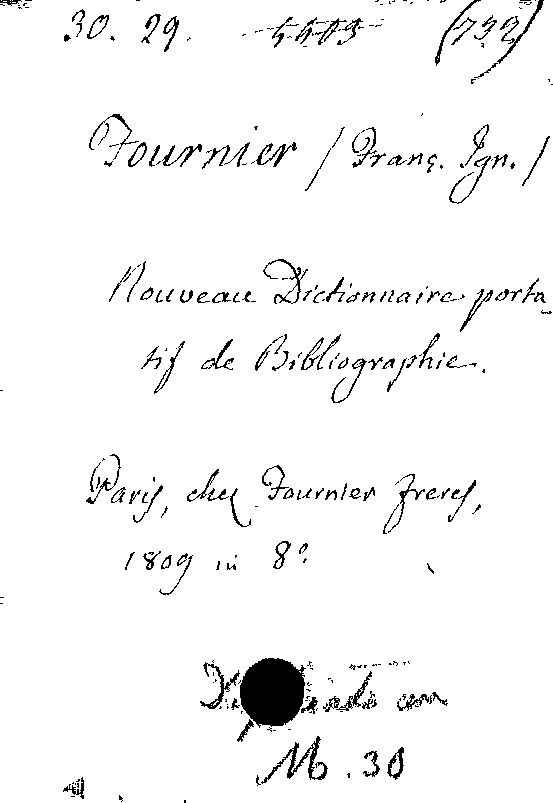 30. 29. 5503 (732)
Fournier / Franç. Ign. /
Nouveau Dictionnaire porta-
tif de Bibliographie.
Paris, chez Fournier freres,
1809 in 8°
M. 30